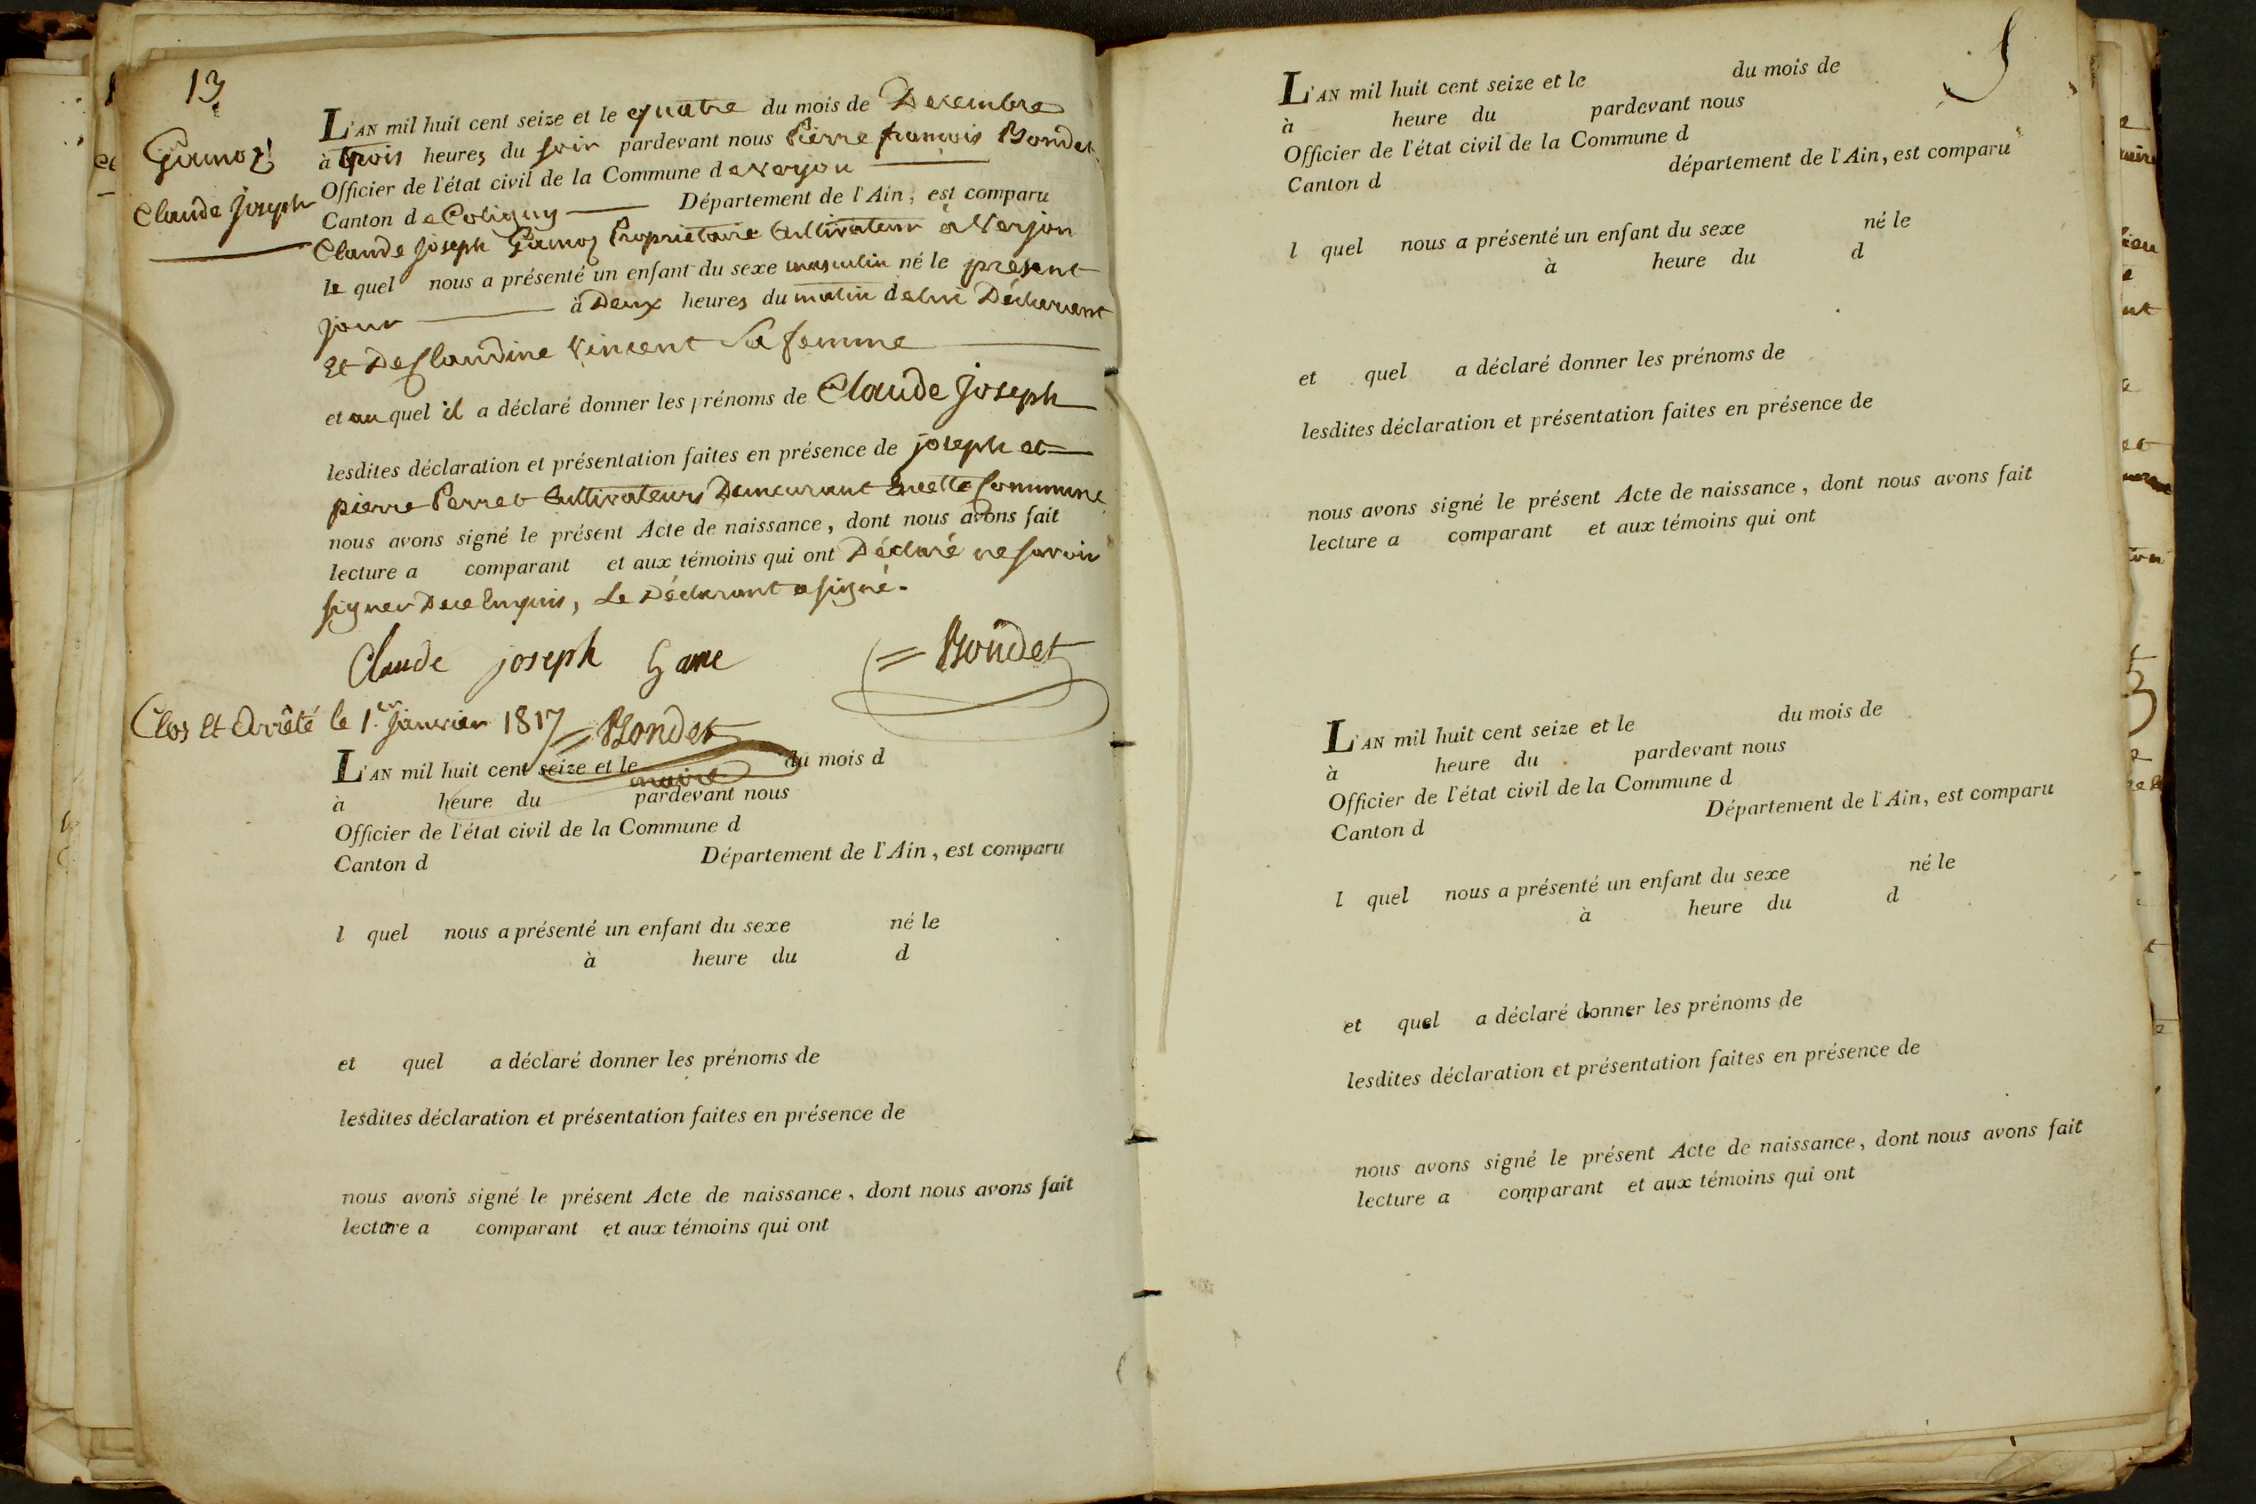 13
Gamoz
Claude joseph
L'AN mil huit cent seize et le quatre du mois de Decembre
à trois heures du soir pardevant nous Pierre françois Bondet
Officier de l'état civil de la Commune de Verjon
Canton de Coligny Département de l'Ain, est comparu
Claude Joseph Gamoz Proprietaire Cultivateur à Verjon
le quel nous a présenté un enfant du sexe masculin né le present
jour à Deux heures du matin de lui Déclarant
Et De Claudine Vincent Sa femme
et au quel il a déclaré donner les prénoms de Claude joseph
lesdites déclaration et présentation faites en présence de joseph et
pierre Perret Cultivateurs Demeurant Encette Commune
nous avons signé le présent Acte de naissance, dont nous avons fait
lecture a comparant et aux témoins qui ont Déclaré ne savoir
signer De ce Enquis, Le Déclarant a signé.
Claude joseph Game Bondet
Clos Et Arrêté le 1.er Janvier 1817 Bondet
maire
L'AN mil huit cent seize et le du mois d
à heure du pardevant nous
Officier de l'état civil de la Commune d
Canton d Département de l'Ain, est comparu
l quel nous a présenté un enfant du sexe né le
à heure du d
et quel a déclaré donner les prénoms de
lesdites déclaration et présentation faites en présence de
nous avons signé le présent Acte de naissance, dont nous avons fait
lecture a comparant et aux témoins qui ont
L'AN mil huit cent seize et le du mois de
à heure du pardevant nous
Officier de l'état civil de la Commune d
Canton d département de l'Ain, est comparu
l quel nous a présenté un enfant du sexe né le
à heure du d
et quel a déclaré donner les prénoms de
lesdites déclaration et présentation faites en présence de
nous avons signé le présent Acte de naissance, dont nous avons fait
lecture a comparant et aux témoins qui ont
L'AN mil huit cent seize et le du mois de
à heure du pardevant nous
Officier de l'état civil de la Commune d
Canton d Département de l'Ain, est comparu
l quel nous a présenté un enfant du sexe né le
à heure du d
et quel a déclaré donner les prénoms de
lesdites déclaration et présentation faites en présence de
nous avons signé le présent Acte de naissance, dont nous avons fait
lecture a comparant et aux témoins qui ont